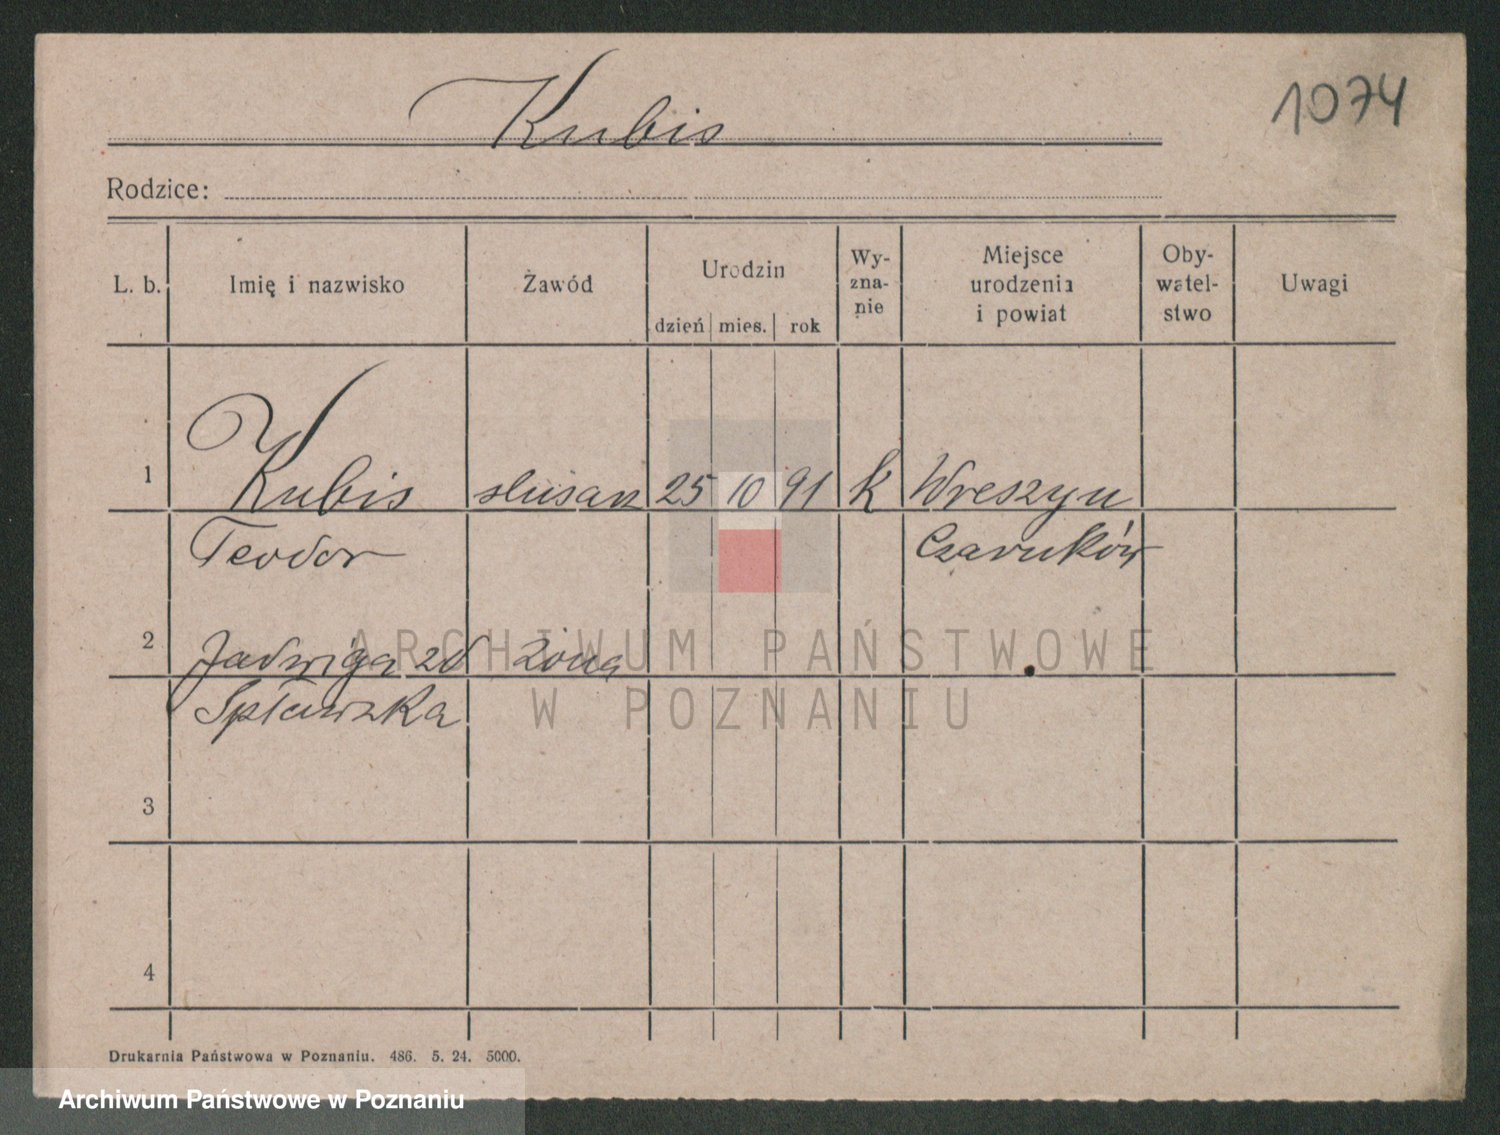 Kubis
1074
Rodzice:
L. b.
Imię i nazwisko
Żawód
Urodzin
dzień mies. rok
Wy-
zna-
nie
Miejsce
urodzenia
i powiat
Oby-
watel-
stwo
Uwagi
1 Kubis ślusarz 25 10 91 k Wreszyn
Teodor Czarnków
2 Jadwiga zd żona
Spławska
3
4
ARCHIWUM PAŃSTWOWE
W POZNANIU
Drukarnia Państwowa w Poznaniu. 486. 5. 24. 5000.
Archiwum Państwowe w Poznaniu